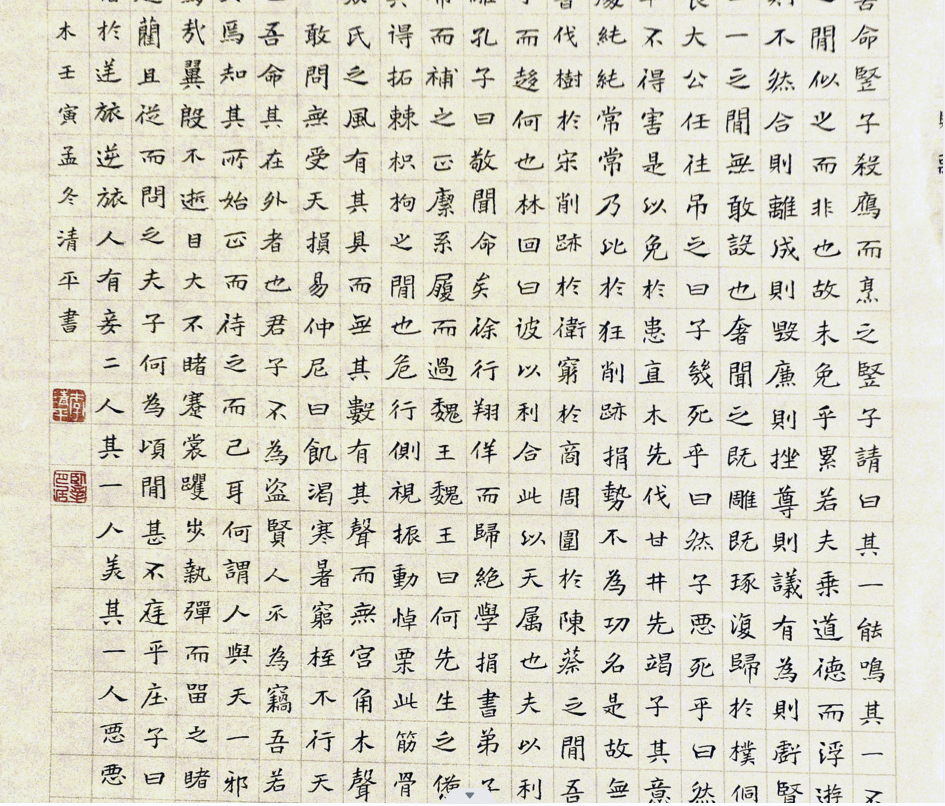 命竪子殺鴈而烹之竪子請曰其一能鳴其一不
間似之而非也故未免乎累若夫乗道德而浮遊
則不然合則離成則毀廉則挫尊則議有為則虧賢
一之間無敢設也奢聞之既雕既琢復歸於樸侗
大公任往吊之曰子幾死乎曰然子悪死乎曰然
不得害是以免於患直木先伐甘井先竭子其意
純純常常乃比於狂削跡捐勢不為功名是故無
伐樹於宋削跡於衛窮於商周圍於陳蔡之間吾
而趍何也林回曰彼以利合此以天属也夫以利
孔子曰敬聞命矣徐行翔佯而歸絶學捐書弟子
而補之正緳系履而過魏王魏王曰何先生之憊
得拓棘枳枸之間也危行側視振動悼栗此筋骨
氏之風有其具而無其數有其聲而無宮角木聲
敢問無受天損易仲尼曰飢渴寒暑窮桎不行天
吾命其在外者也君子不為盗賢人不為竊吾若
焉知其所始正而待之而已耳何謂人與天一邪
哉翼殷不逝目大不睹蹇裳躩步執彈而留之睹
藺且從而問之夫子何為頃間甚不庭乎庄子曰
於逆旅逆旅人有妾二人其一人美其一人悪悪
木壬寅孟冬清平書